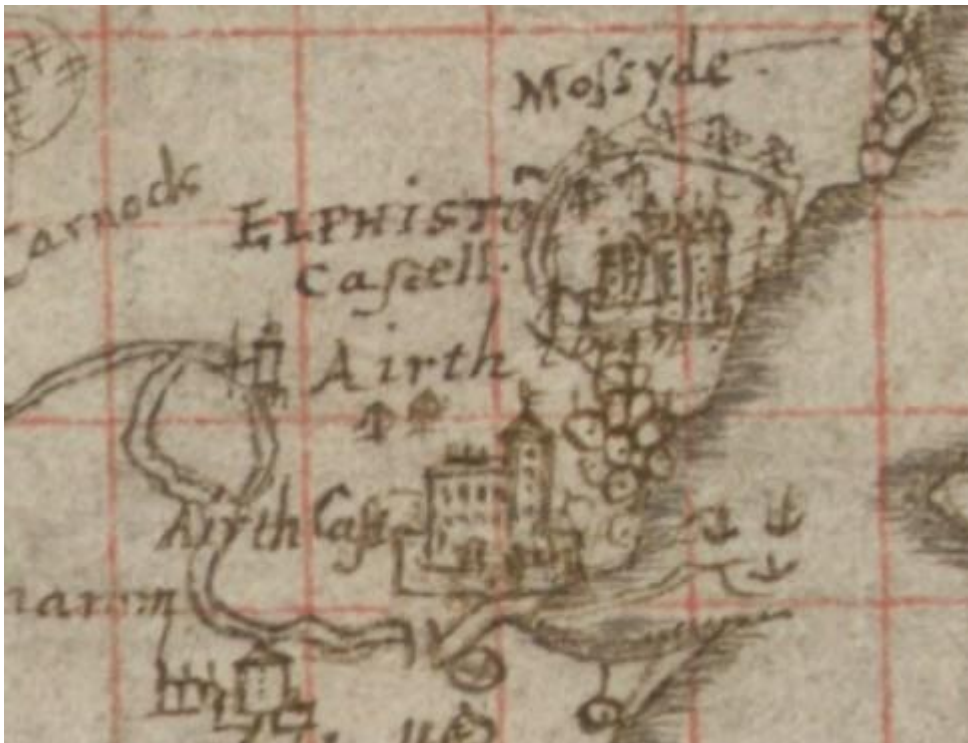 Mosſyde
Carnock
ELPHISTÕ
Caſtell.
Airth town.
Airth Caſt